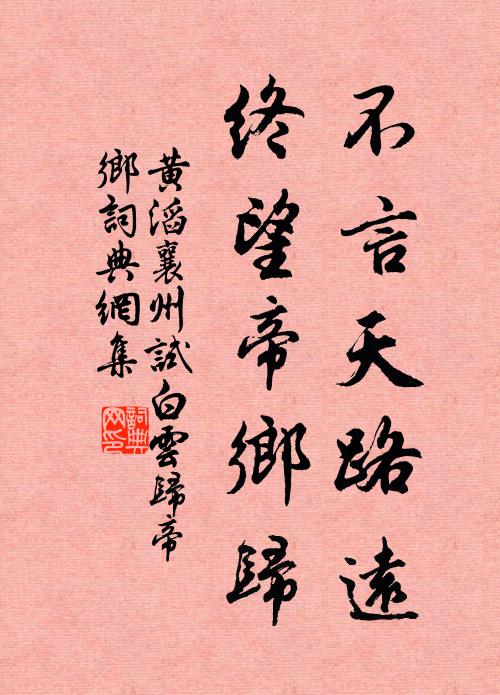 不言天路遠
終望帝鄉歸
黃滔襄州試白雲歸帝
鄉詞典網集
詞典
网印